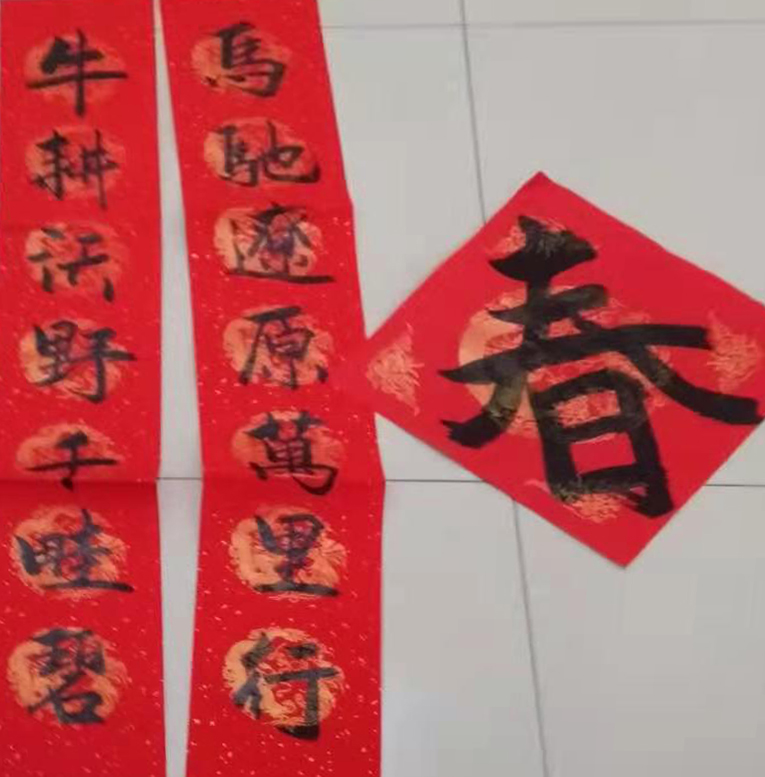 馬馳遼原萬里行
牛耕沃野千畦碧
春